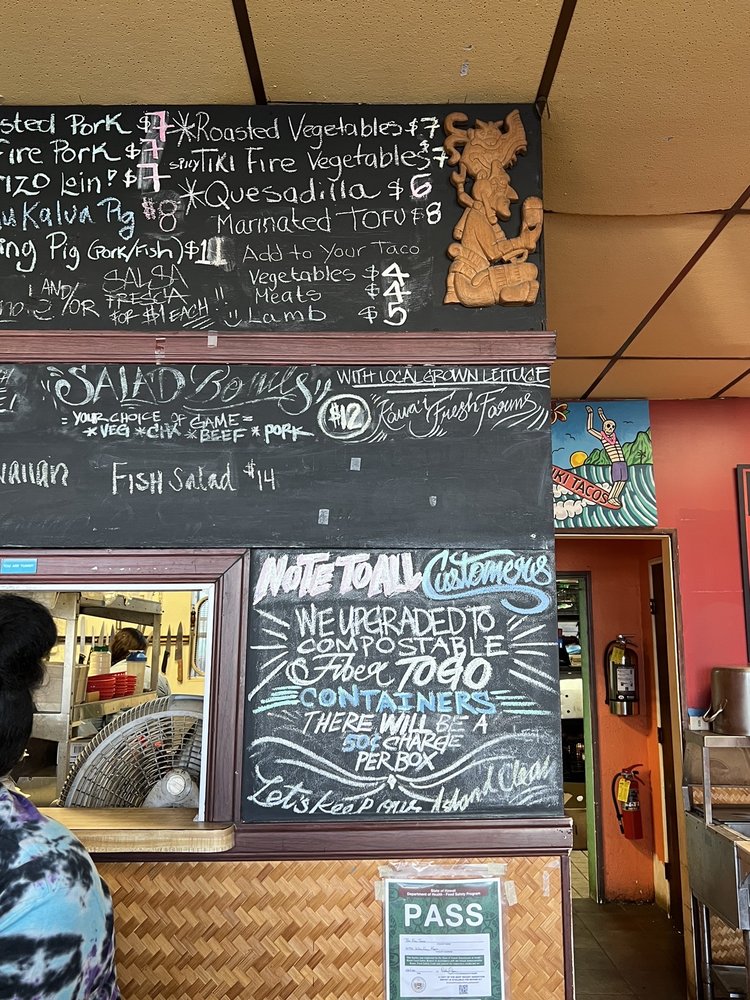 sted Pork $7
Fire Pork $7
rizo Loin! $7
u Kalua Pig $8
ing Pig (Pork/Fish) $11
AND/OR SALSA FRESCA FOR $1 EACH
*Roasted Vegetables $7
SPICY TIKI Fire Vegetables $7
*Quesadilla $6
Marinated TOFU $8
Add to Your Taco
Vegetables $4
Meats $4
Lamb $5
"SALAD Bowls" WITH LOCAL GROWN LETTUCE
=YOUR CHOICE OF GAME= $12 Kaua'i Fresh Farms
*VEG *CHX *BEEF *PORK
waiian
FISH Salad $14
NOTE TO ALL Customers
WE UPGRADED TO
COMPOSTABLE
Fiber TOGO
CONTAINERS
THERE WILL BE A
50¢ CHARGE
PER BOX
Let's Keep our Island Clean
IKI TACOS
State of Hawaii
Department of Health - Food Safety Program
PASS